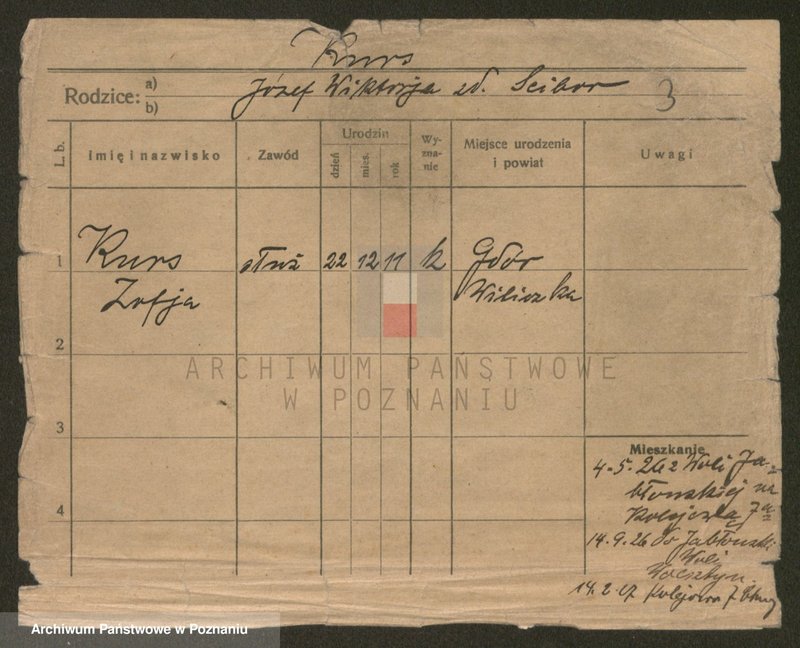 Kurs
Rodzice: a) b) Józef Wiktorja zd. Scibor 3
L. b. Imię i nazwisko Zawód Urodzin dzień mies. rok Wy-zna-nie Miejsce urodzenia i powiat Uwagi
1 Kurs służ 22 12 11 k Gdór
Zofja Wiliczka
2
ARCHIWUM PAŃSTWOWE
W POZNANIU
3
Mieszkanie
4-5-26 z Woli Ja-
błonskiej na
4 Kolejową
14.9.26 do Jabłonski
Woli
Wolsztyn.
14.2.27 Kolejowa 7
Archiwum Państwowe w Poznaniu